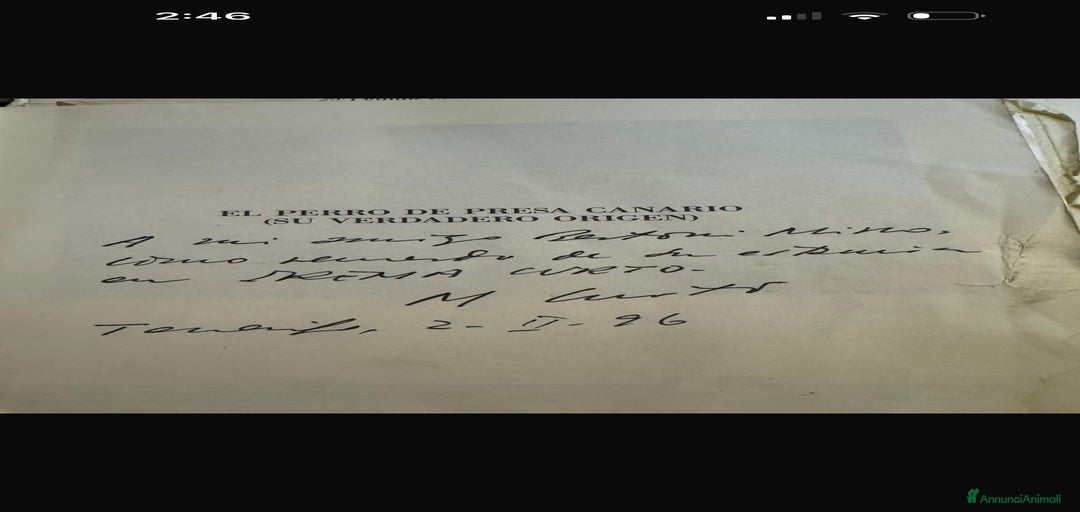 2:46
EL PERRO DE PRESA CANARIO
(SU VERDADERO ORIGEN)
A mi amigo Bertoni Mirko,
como recuerdo de su estancia
en IREMA CURTO-
M Curtó
Tenerife, 2-II-96
AnnunciAnimali